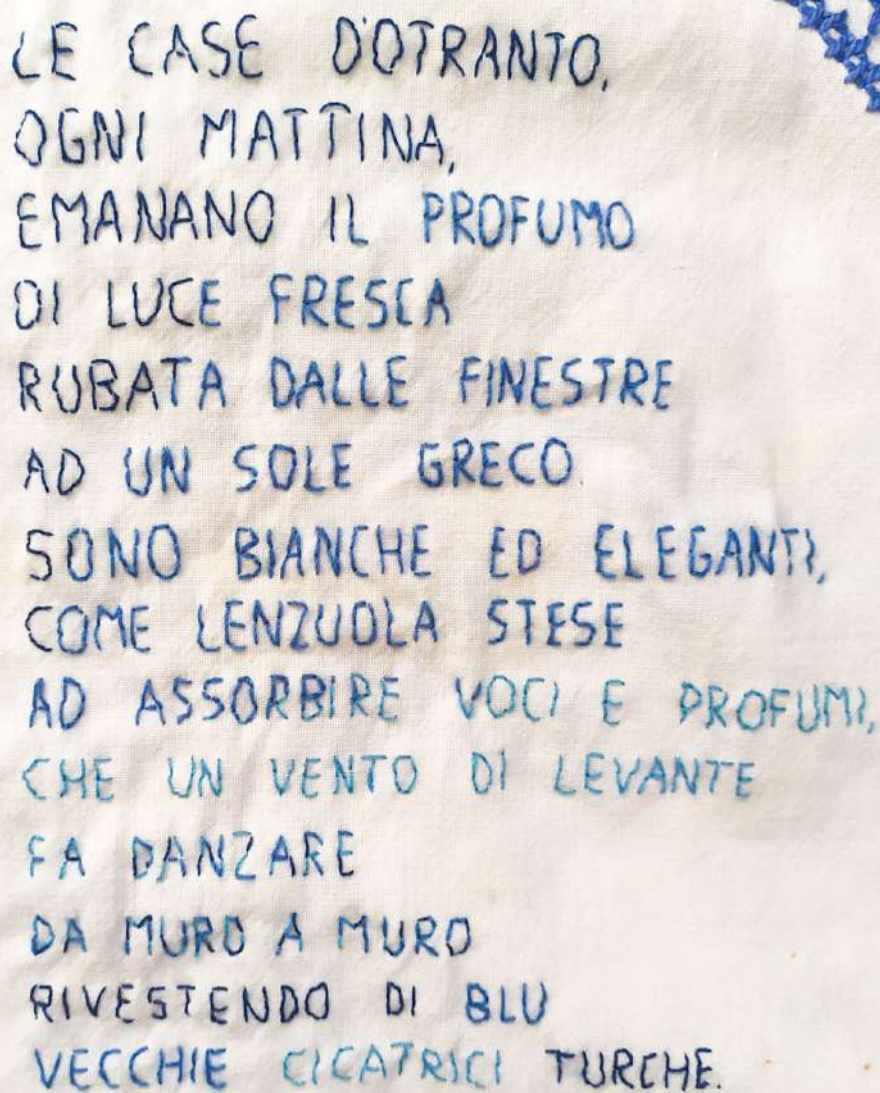 LE CASE D'OTRANTO,
OGNI MATTINA,
EMANANO IL PROFUMO
DI LUCE FRESCA
RUBATA DALLE FINESTRE
AD UN SOLE GRECO.
SONO BIANCHE ED ELEGANTI,
COME LENZUOLA STESE
AD ASSORBIRE VOCI E PROFUMI,
CHE UN VENTO DI LEVANTE
FA DANZARE
DA MURO A MURO
RIVESTENDO DI BLU
VECCHIE CICATRICI TURCHE.